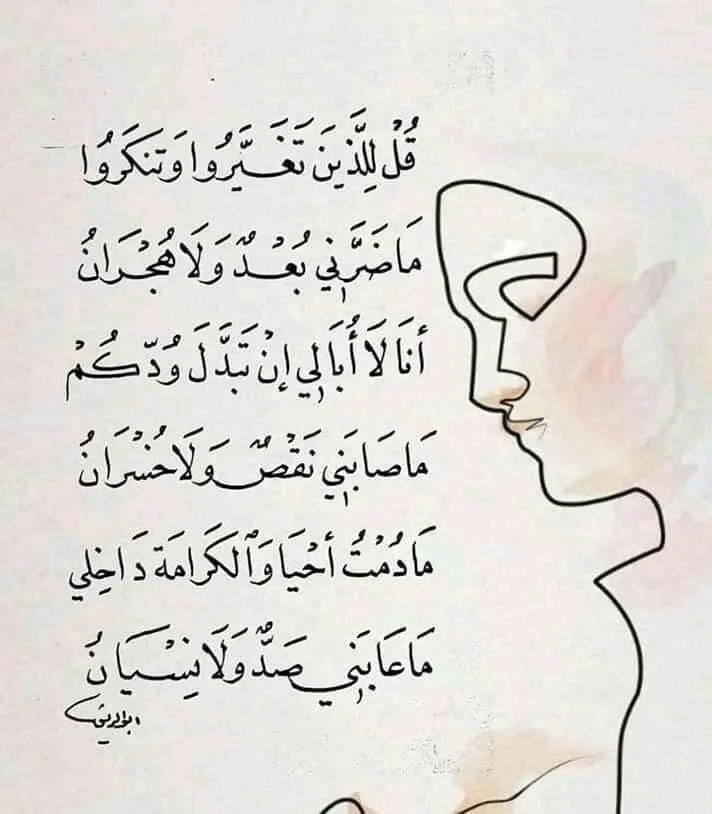 قُلْ لِلَّذِينَ تَغَيَّرُوا وَتَنَكَرُوا
مَا ضَرَّنِي بُعْدٌ وَلَا هُجْرَانُ
أَنَا لَا أُبَالِي إِنْ تَبَدَّلَ وُدّكُمْ
مَا صَابَنِي نَقْصٌ وَلَا خُسْرَانُ
مَا دُمْتُ أحْيَا وَٱلكَرَامَة دَاخِلِي
مَا عَابَنِي صَدٌّ وَلَا نِسْيَانُ